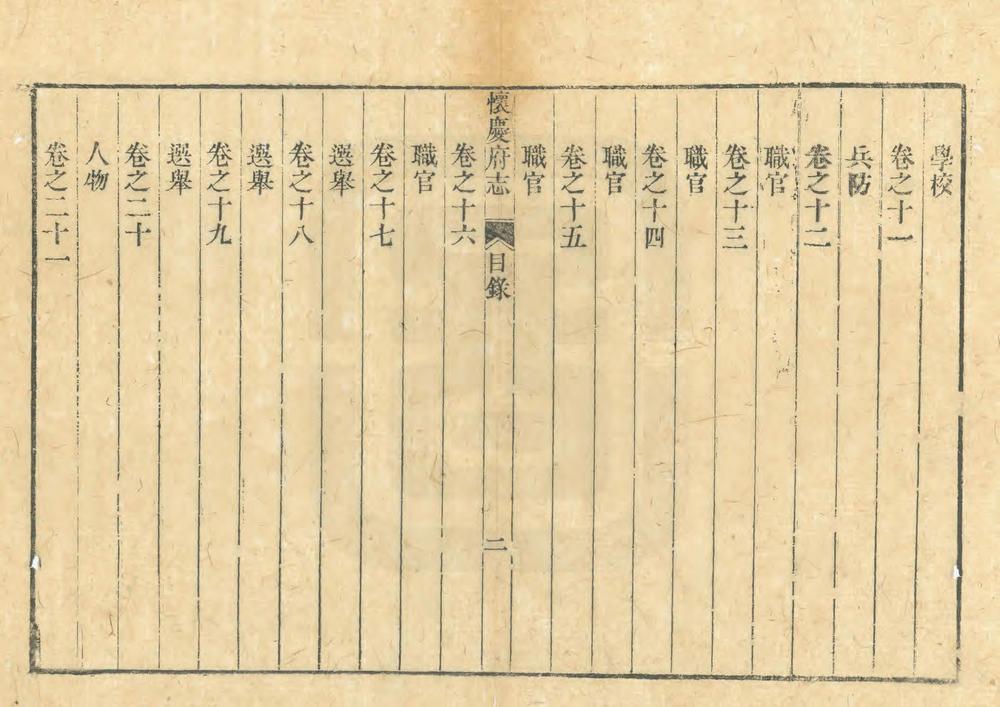 學校
卷之十一
兵防
卷之十二
職官
卷之十三
職官
卷之十四
職官
卷之十五
職官
懷慶府志 目錄 二
卷之十六
職官
卷之十七
選舉
卷之十八
選舉
卷之十九
選舉
卷之二十
人物
卷之二十一